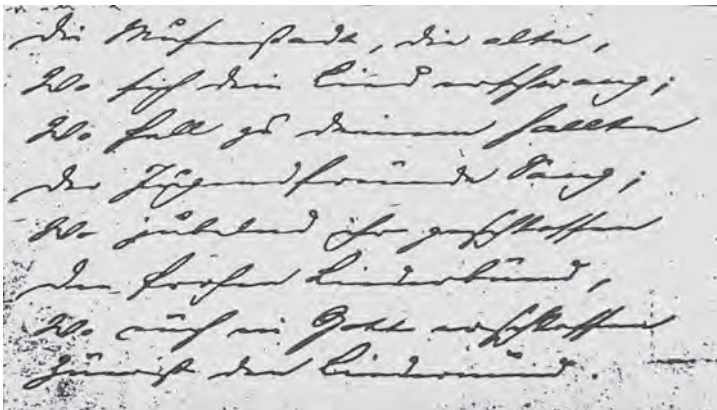 Die Musenstadt, die alte,
Wo sich dein Lied entschwang;
Wo hell zu deinem hallte
Der Jugendfreunde Sang;
Wo jubelnd ihr geschlossen
Den frohen Liederbund,
Wo euch ein Gott erschlossen
Zuerst den Liedermund.